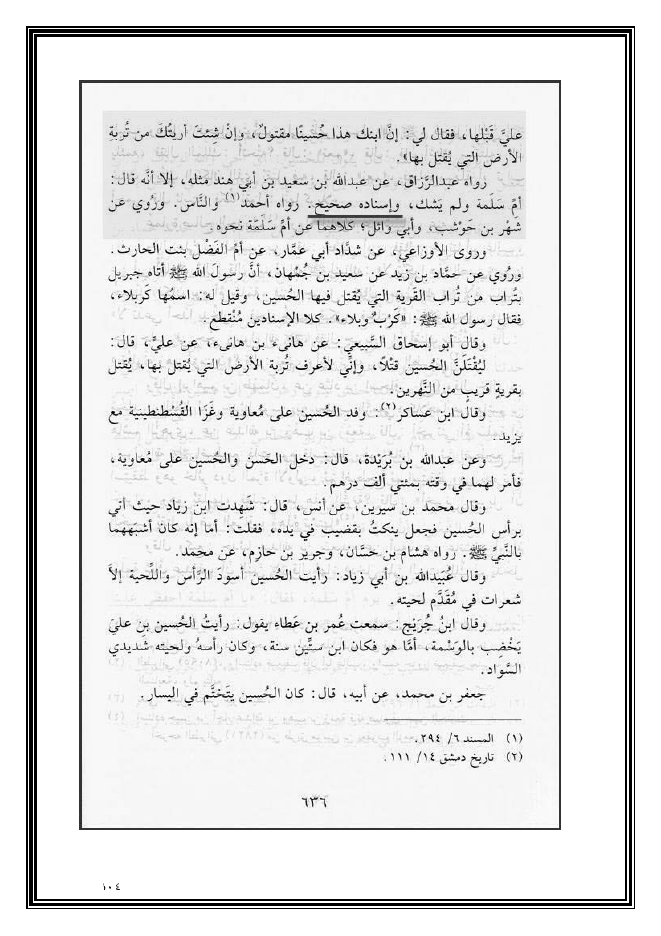 عليَّ قَبْلها، فقال لي: إنَّ ابنك هذا حُسينًا مقتولٌ، وإنْ شِئتَ أريتُكَ من تُربةِ
الأرض التي يُقتل بها».
رواه عبدالرَّزاق، عن عبدالله بن سعيد بن أبي هند مثله، إلا أنَّه قال:
أمّ سَلَمة ولم يَشك، وإسناده صحيح. رواه أحمد(١) والنَّاس. ورُوي عن
شَهْر بن حَوْشب، وأبي وائل؛ كلاهما عن أمّ سَلَمة نحوه.
وروى الأوزاعي، عن شدَّاد أبي عمَّار، عن أمّ الفَضْل بنت الحارث.
ورُوي عن حمَّاد بن زيد عن سعيد بن جُمْهان، أنَّ رسولَ الله ﷺ أتاه جبريل
بتُراب من تُراب القَرية التي يُقتل فيها الحُسين، وقيل له: اسمُها كَربلاء،
فقال رسول الله ﷺ: «كَرْبٌ وبلاء». كلا الإسنادين مُنْقطع.
وقال أبو إسحاق السَّبيعي: عن هانىء بن هانىء، عن عليّ، قال:
ليُقْتَلَنَّ الحُسين قَتْلاً، وإنِّي لأعرف تُربة الأرض التي يُقتل بها، يُقتل
بقريةٍ قريبٍ من النَّهرين.
وقال ابن عساكر(٢): وفد الحُسين على مُعاوية وغَزَا القُسْطنطينية مع
يزيد.
وعن عبدالله بن بُرَيْدة، قال: دخل الحَسن والحُسين على مُعاوية،
فأمر لهما في وقته بمئتي ألف درهم.
وقال محمد بن سيرين، عن أنس، قال: شَهِدت ابنَ زياد حيث أتي
برأس الحُسين فجعل ينكتُ بقضيب في يده، فقلت: أما إنه كان أشبَهَهما
بالنَّبيِّ ﷺ. رواه هشام بن حَسَّان، وجرير بن حازم، عن محمد.
وقال عُبيدالله بن أبي زياد: رأيت الحُسين أسودَ الرَّأس واللِّحية إلاَّ
شعرات في مُقَدَّم لحيته.
وقال ابنُ جُرَيْج: سمعت عُمر بن عَطاء يقول: رأيتُ الحُسين بن عليّ
يَخْضِب بالوَسْمة، أمَّا هو فكان ابن ستِّين سنة، وكان رأسه ولحيته شديدي
السَّواد.
جعفر بن محمد، عن أبيه، قال: كان الحُسين يَتَختَّم في اليسار.
(١) المسند ٦/ ٢٩٤.
(٢) تاريخ دمشق ١٤/ ١١١.
٦٣٦
١٠٤